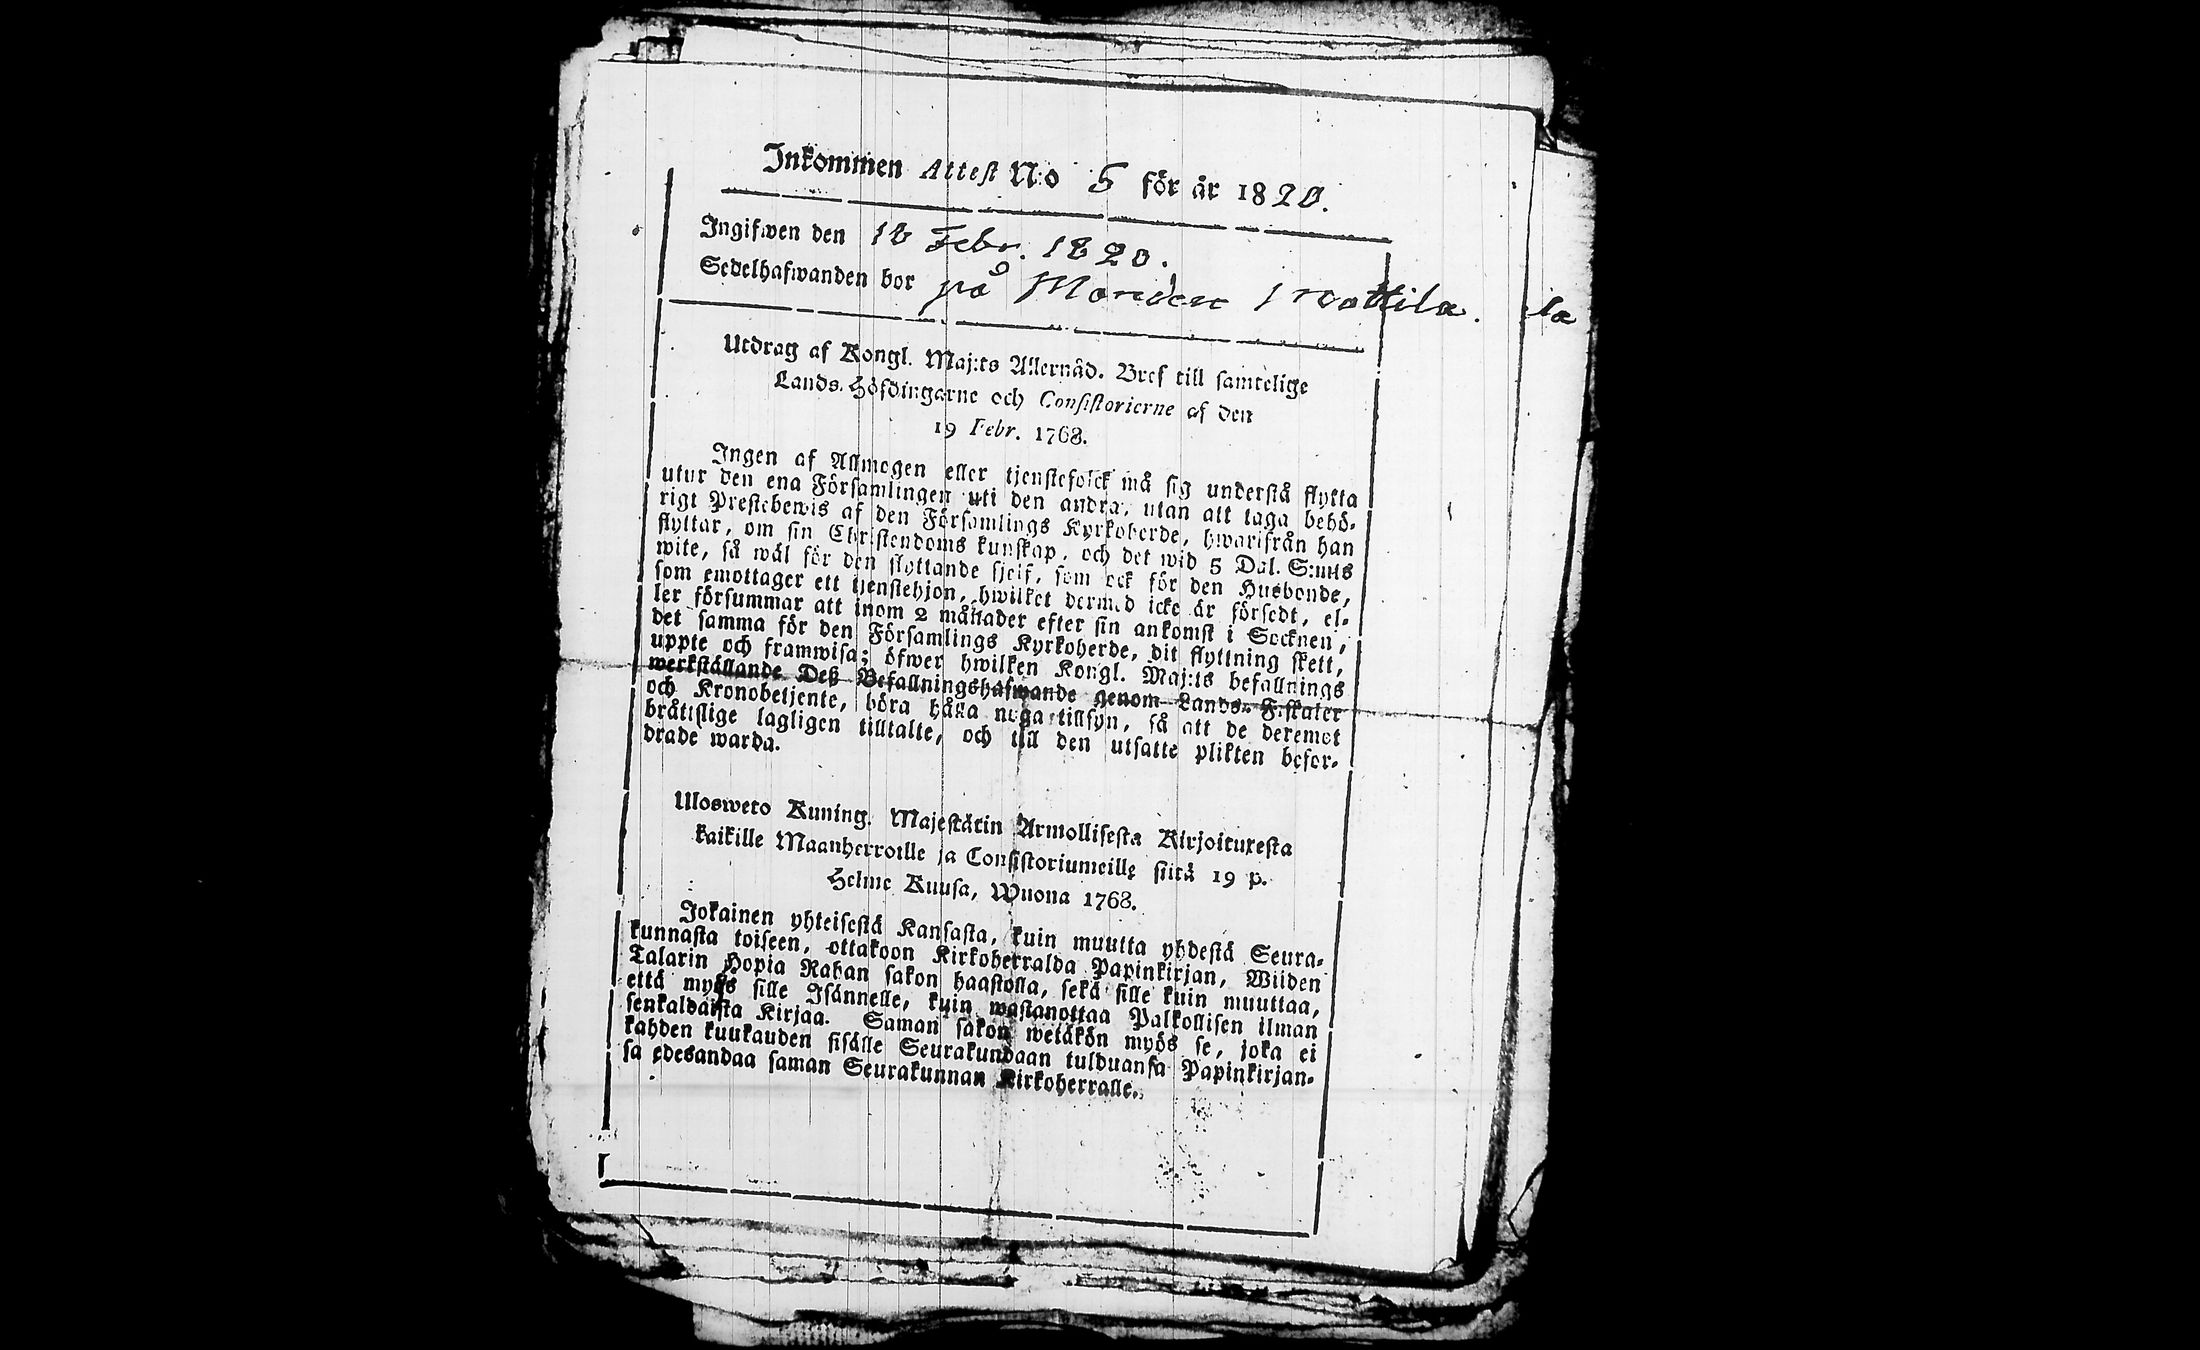 Inkommen Attest N:o 5 för år 1820.
Ingifwen den 18 Febr. 1820.
Sedelhafwanden bor på
Utdrag af Kongl. Maj:ts Allernåd. Bref till samtelige
Lands-Höfdingarne och Consistorierne af den
19 Febr. 1768.
Ingen af Allmogen eller tjenstefolck må sig understå flytta
utur den ena Församlingen uti den andra, utan att taga behö-
rigt Prestebewis af den Församlings Kyrkoherde, hwarifrån han
flyttar, om sin Christendoms kunskap, och det wid 5 Dal. S:mts
wite, så wäl för den flyttande sjelf, som ock för den Husbonde,
som emottager ett tjenstehjon, hwilket dermed icke är försedt, el-
ler försummar att inom 2 månader efter sin ankomst i Socknen,
det samma för den Församlings Kyrkoherde, dit flyttning skett,
uppte och framwisa; öfwer hwilken Kongl. Maj:ts befallnings
werkställande Deß Befallningshafwande genom Lands-Fiskaler
och Kronobetjente, böra hålla noga tillsyn, så att de deremot
bråtslige lagligen tilltalte, och till den utsatte plikten befor-
drade warda.
Ulosweto Kuning. Majestätin Armollisesta Kirjoituxesta
kaikille Maanherroille ja Consistoriumeille siitä 19 p.
Helme Kuusa, Wuona 1768.
Jokainen yhteisestä Kansasta, kuin muutta yhdestä Seura-
kunnasta toiseen, ottakoon Kirkoherralda Papinkirjan, Wiiden
Talarin Hopia Rahan sakon haastolla, sekä sille kuin muuttaa,
että myös sille Isännelle, kuin wastanottaa Palkollisen ilman
senkaldaista Kirjaa. Saman sakon wetäkön myös se, joka ei
kahden kuukauden sisälle Seurakundaan tulduansa Papinkirjan-
sa edesandaa saman Seurakunnan Kirkoherralle.
la